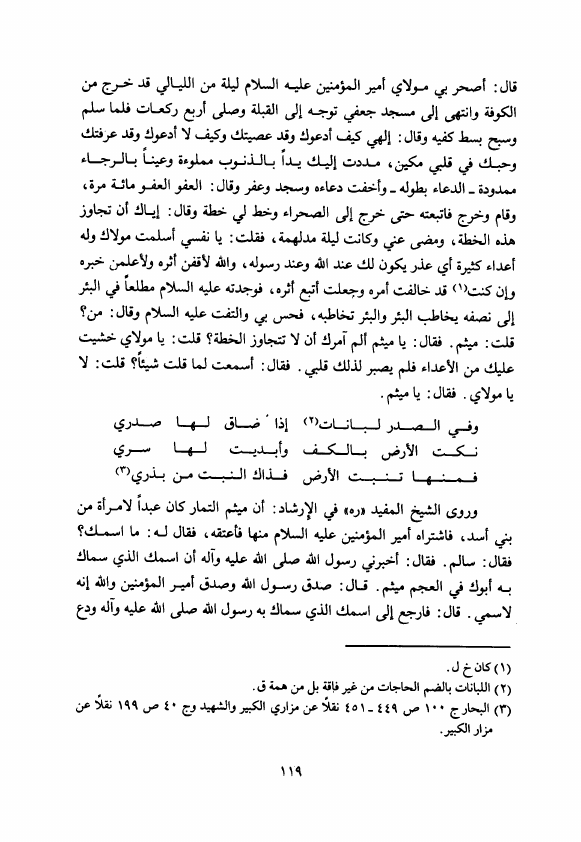 قال: أصحر بي مـولاي أمير المؤمنين عليـه السلام ليلة من الليـالي قد خـرج من
الكوفة وانتهى إلى مسجد جعفي توجـه إلى القبلة وصلى أربع ركعـات فلما سلم
وسبح بسط كفيه وقال: إلهي كيف أدعوك وقد عصيتك وكيف لا أدعوك وقد عرفتك
وحبـك في قلبي مكين، مـددت إليـك يـداً بـالـذنـوب مملوءة وعينـاً بـالـرجـاء
ممدودة ـ الدعاء بطوله ـ وأخفت دعاءه وسجد وعفر وقال: العفو العفـو مائـة مرة،
وقام وخرج فاتبعته حتى خرج إلى الصحراء وخط لي خطة وقال: إيـاك أن تجاوز
هذه الخطة، ومضى عني وكانت ليلة مدلهمة، فقلت: يا نفسي أسلمت مولاك وله
أعداء كثيرة أي عذر يكون لك عند الله وعند رسوله، والله لأقفن أثره ولأعلمن خبره
وإن كنت(١) قد خالفت أمره وجعلت أتبع أثره، فوجدته عليه السلام مطلعاً في البئر
إلى نصفه يخاطب البئر والبئر تخاطبه، فحس بي والتفت عليه السلام وقال: من؟
قلت: ميثم. فقال: يا ميثم ألم آمرك أن لا تتجاوز الخطة؟ قلت: يا مولاي خشيت
عليك من الأعداء فلم يصبر لذلك قلبي. فقال: أسمعت لما قلت شيئاً؟ قلت: لا
يا مولاي. فقال: يا ميثم.
وفـي الـصـدر لـبـانـات(٢) إذا ضـاق لـهـا صـدري
نـكـت الأرض بـالـكـف وأبـديـت لـهـا سـري
فـمـنـهـا تـنـبـت الأرض فـذاك الـنـبـت مـن بـذري(٣)
وروى الشيخ المفيد «ره» في الإرشاد: أن ميثم التمار كان عبداً لامـرأة من
بني أسد، فاشتراه أمير المؤمنين عليه السلام منها فأعتقه، فقال لـه: ما اسمـك؟
فقال: سالم. فقال: أخبرني رسول الله صلى الله عليه وآله أن اسمك الذي سماك
بـه أبوك في العجم ميثم. قـال: صدق رسـول الله وصدق أميـر المؤمنين والله إنه
لاسمي. قال: فارجع إلى اسمك الذي سماك به رسول الله صلى الله عليه وآله ودع
(١) كان خ ل.
(٢) اللبانات بالضم الحاجات من غير فاقة بل من همة ق.
(٣) البحار ج ١٠٠ ص ٤٤٩ ـ ٤٥١ نقلاً عن مزاري الكبير والشهيد وج ٤٠ ص ١٩٩ نقلاً عن
مزار الكبير.
١١٩